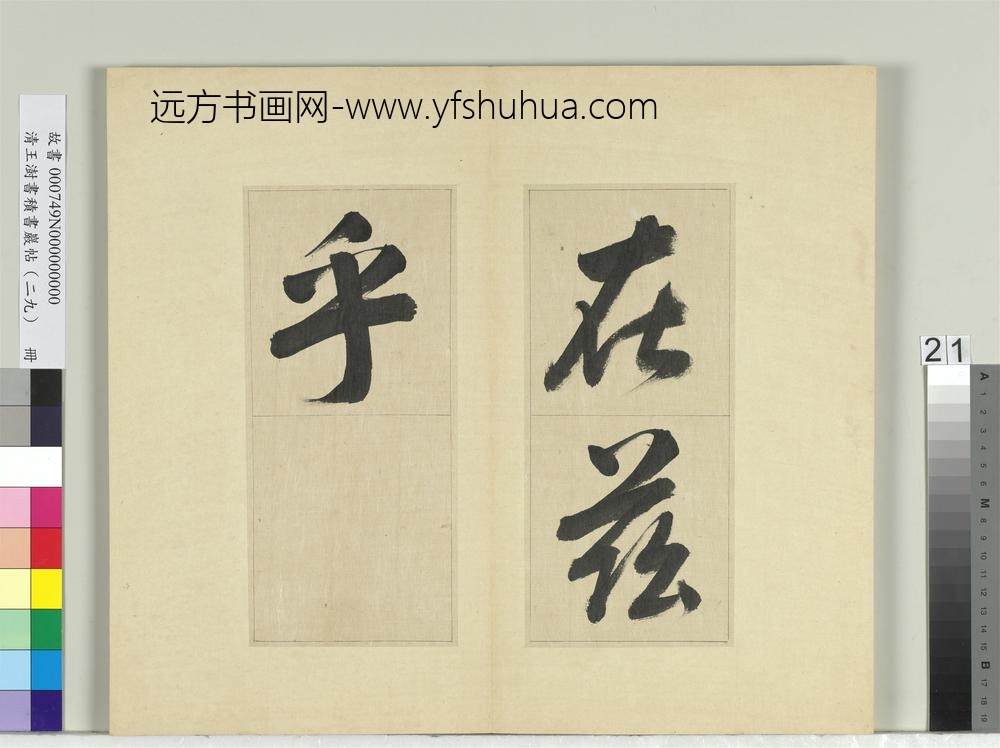 远方书画网-www.yfshuhua.com
在茲
乎
故書 000749N000000000
清王澍書積書巖帖（二九） 冊
21
A 1 2 3 4 5 6 M 8 9 10 11 12 13 14 15 B 17 18 19